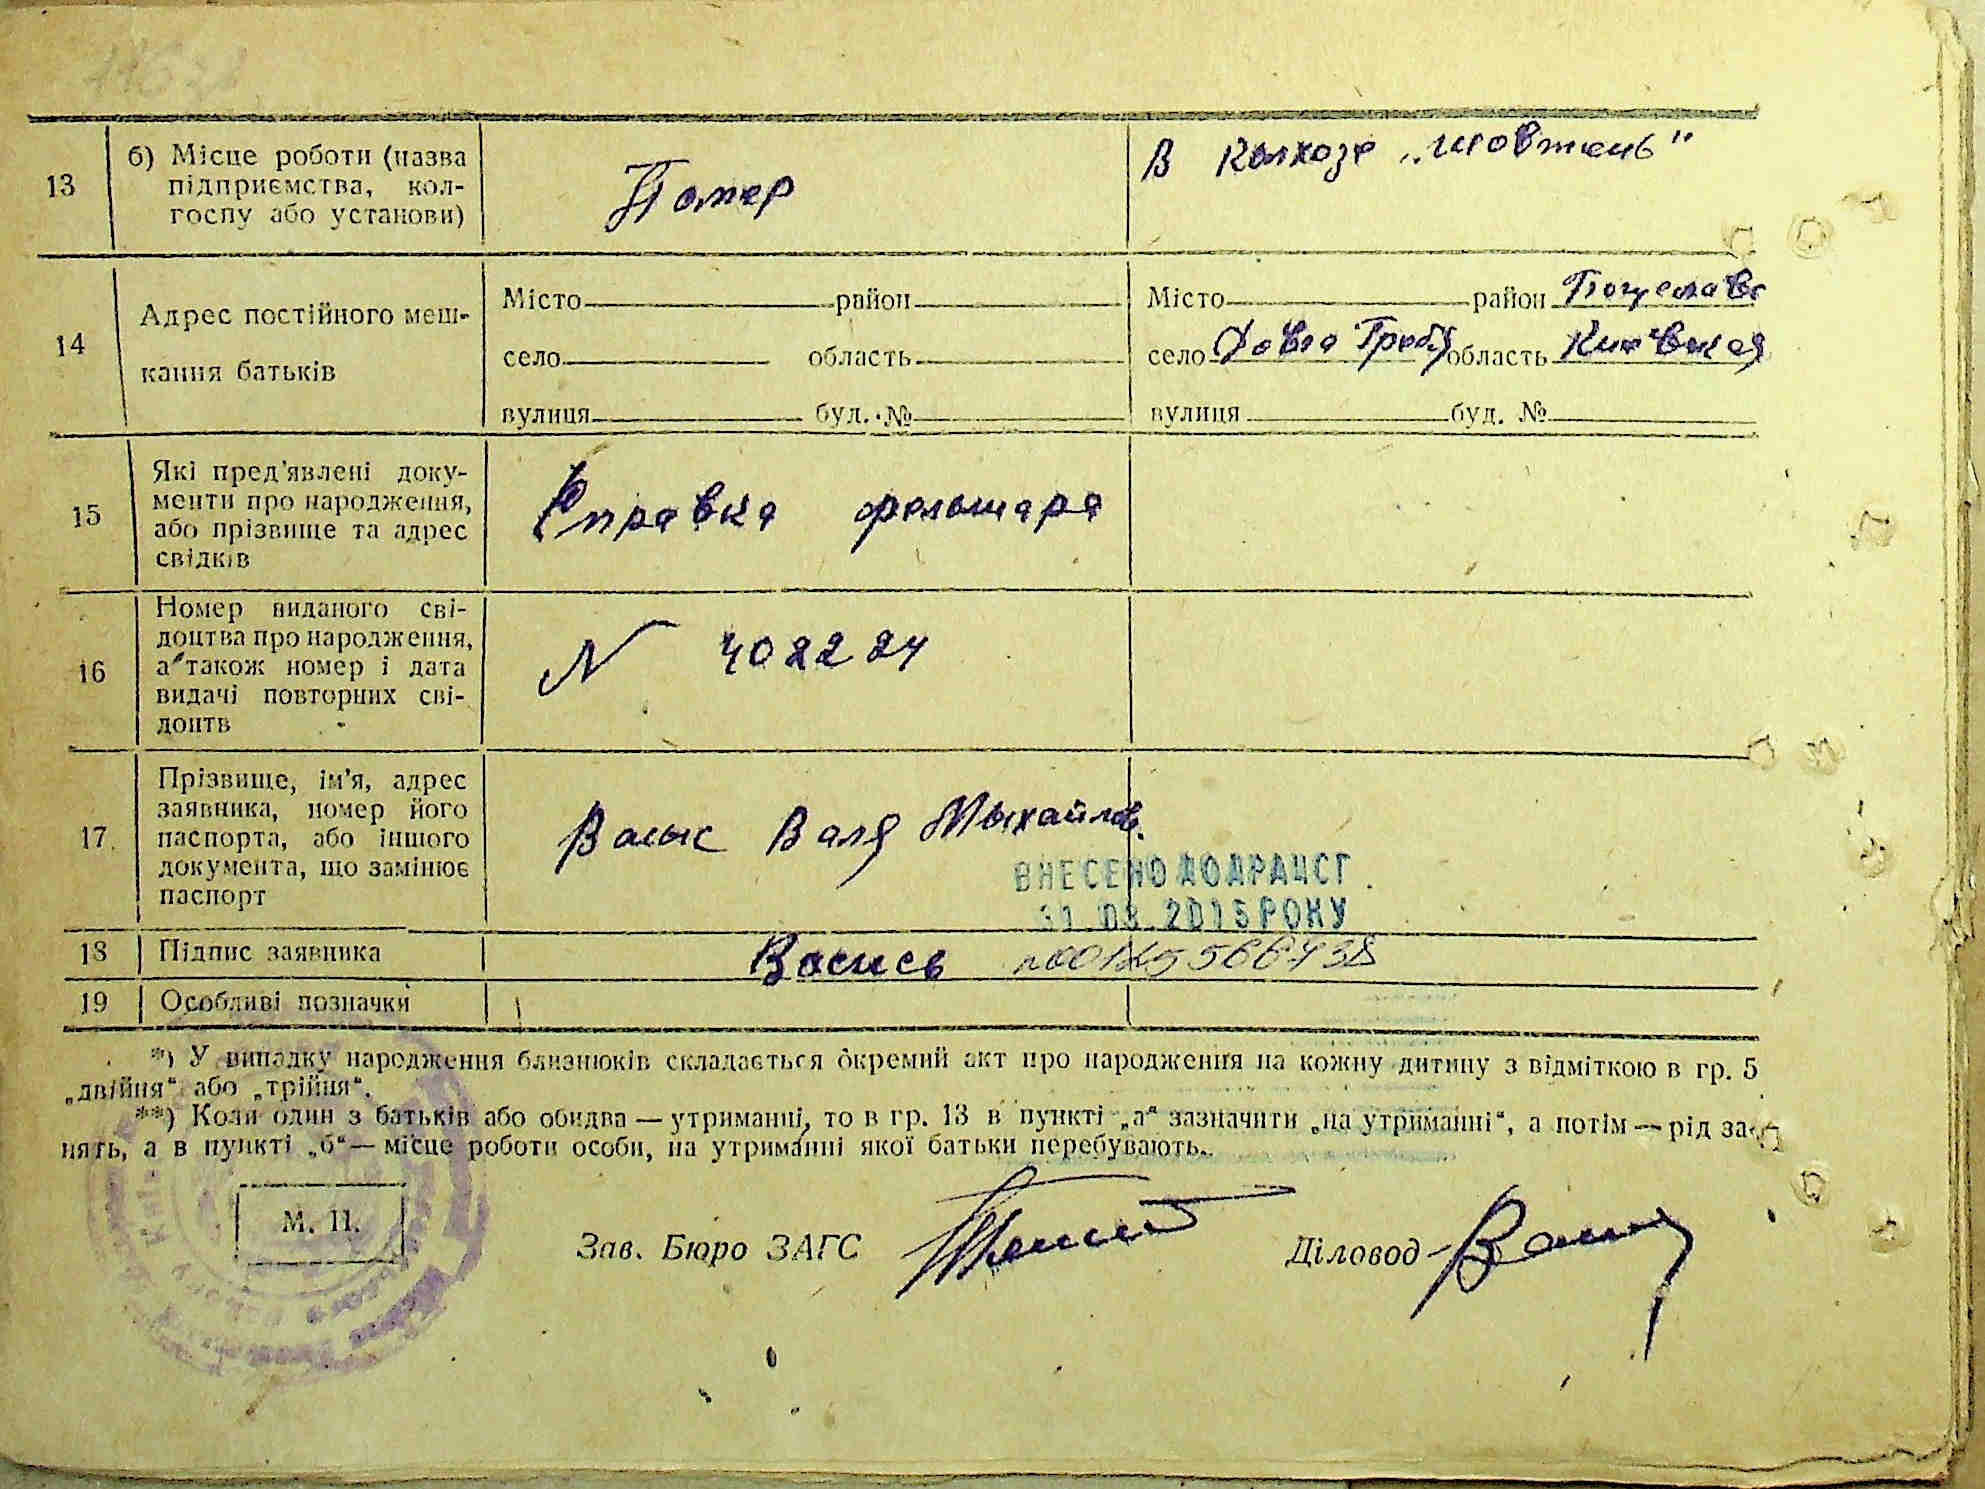 13
б) Місце роботи (назва
підприємства, кол-
госпу або установи)
Помер
в колхозе „Жовтень"
14
Адрес постійного меш-
кання батьків
Місто район
село область
вулиця буд. №
Місто район Богуславс
село Довга Гребл область Киевская
вулиця буд. №
15
Які пред'явлені доку-
менти про народження,
або прізвище та адрес
свідків
Справка фельшара
16
Номер виданого сві-
доцтва про народження,
а також номер і дата
видачі повторних сві-
доцтв
N 402224
17
Прізвище, ім'я, адрес
заявника, номер його
паспорта, або іншого
документа, що замінює
паспорт
Валя Мыхайлов.
ВНЕСЕНО ДО ДРАЦСГ
31.03.2015 РОКУ
18 Підпис заявника
19 Особливі позначки
*) У випадку народження близнюків складається окремий акт про народження на кожну дитину з відміткою в гр. 5
„двійня“ або „трійня“.
**) Коли один з батьків або обидва — утриманні, то в гр. 13 в пункті „а“ зазначити „на утриманні“, а потім — рід за-
нять, а в пункті „б“ — місце роботи особи, на утриманні якої батьки перебувають.
М. П.
Зав. Бюро ЗАГС
Діловод